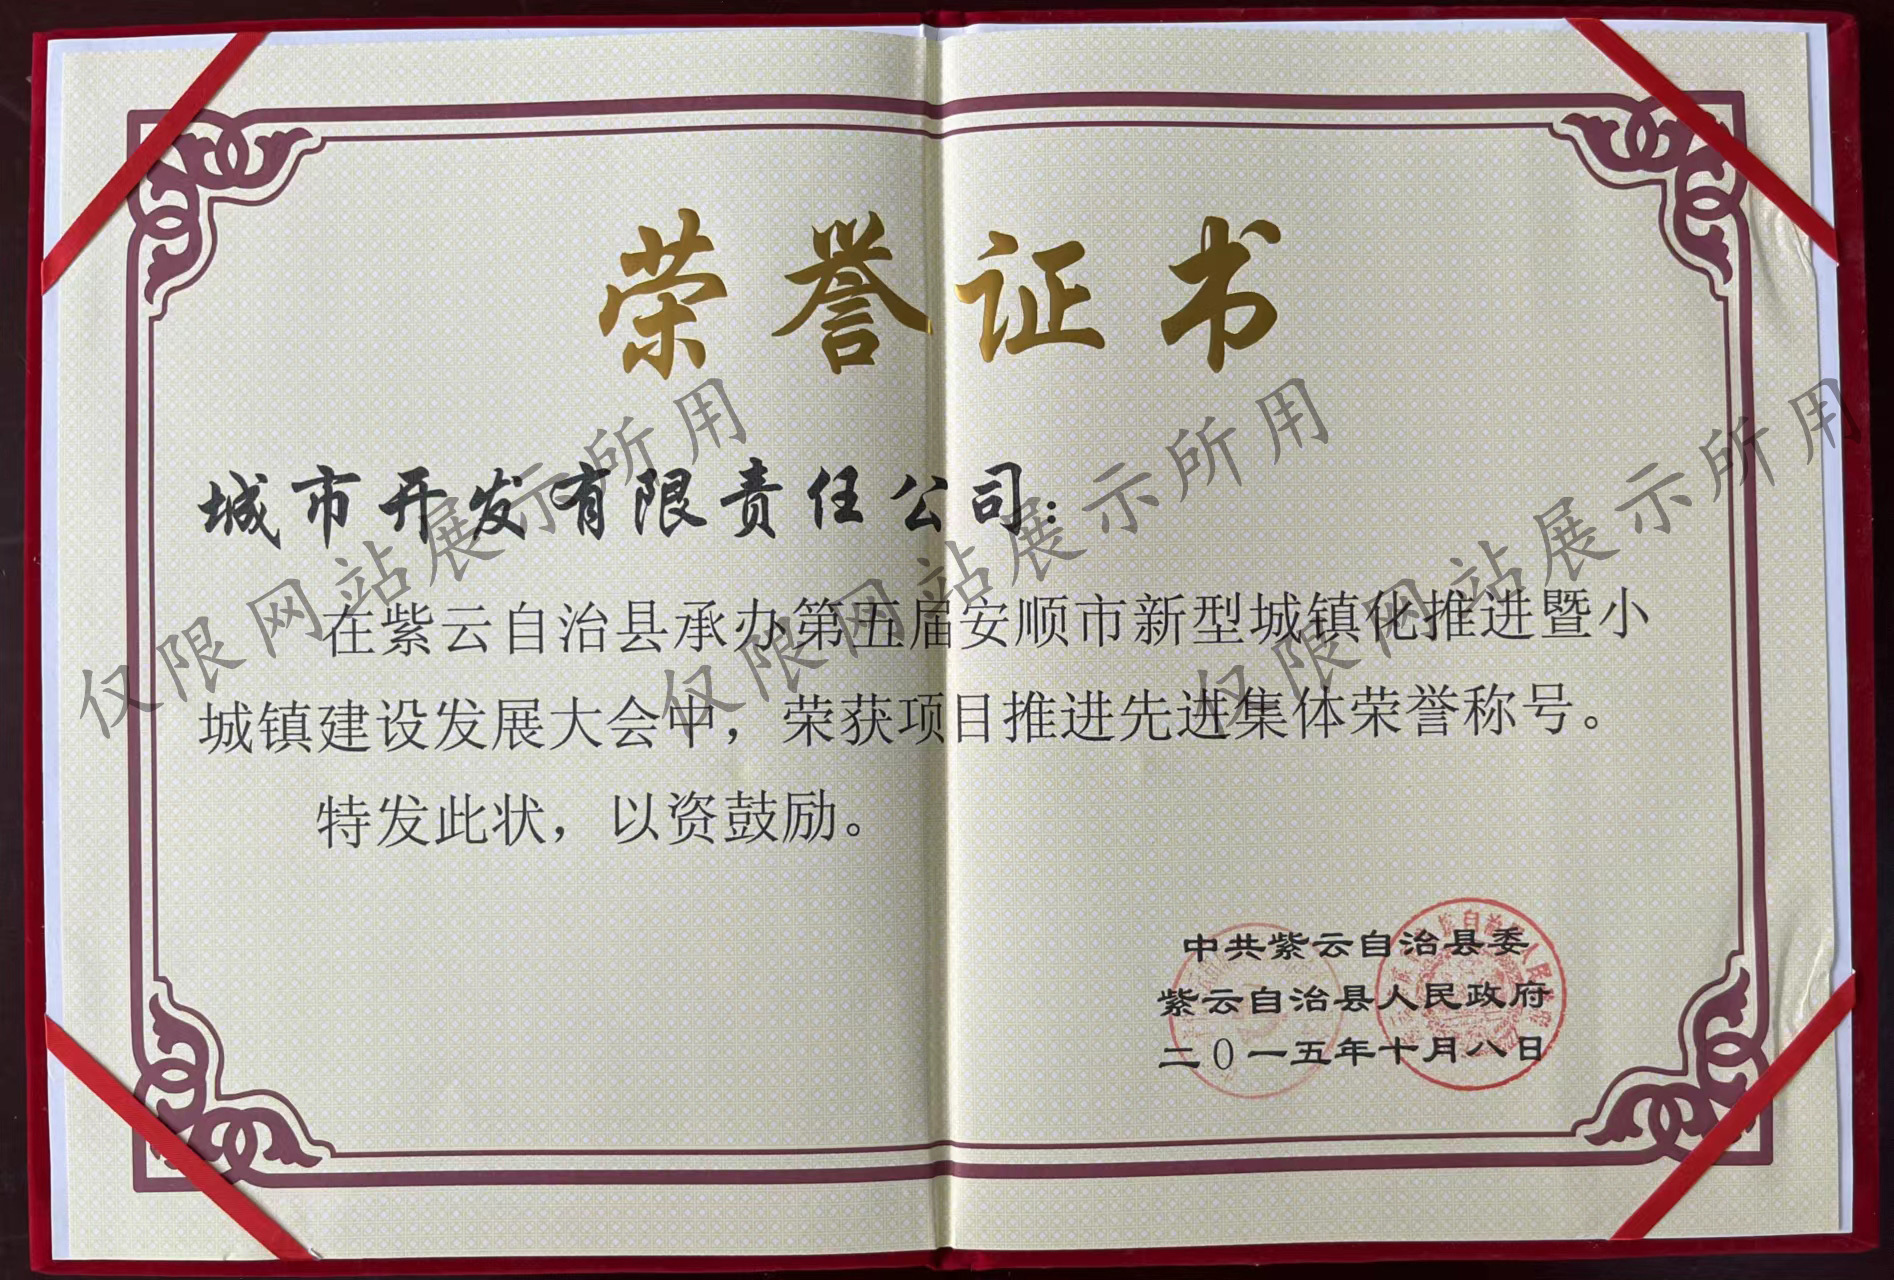 荣誉证书
城市开发有限责任公司：
在紫云自治县承办第五届安顺市新型城镇化推进暨小
城镇建设发展大会中，荣获项目推进先进集体荣誉称号。
特发此状，以资鼓励。
中共紫云自治县委
紫云自治县人民政府
二0一五年十月八日
仅限网站展示所用
仅限网站展示所用
仅限网站展示所用